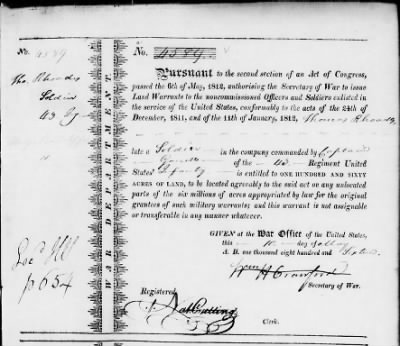 No. 4589
Tho. Rhoades
Soldier
43 Rg
WAR DEPARTMENT.
No. 4589
Pursuant to the second section of an Act of Congress,
passed the 6th of May, 1812, authorising the Secretary of War to issue
Land Warrants to the noncommissioned Officers and Soldiers enlisted in
the service of the United States, conformably to the acts of the 24th of
December, 1811, and of the 11th of January, 1812, Thomas Rhoades
late a Soldier in the company commanded by Captain
of the 43 Regiment United
States' Infantry is entitled to ONE HUNDRED AND SIXTY
ACRES OF LAND, to be located agreeably to the said act on any unlocated
parts of the six millions of acres appropriated by law for the original
grantees of such military warrants; and this warrant is not assignable
or transferable in any manner whatever.
GIVEN at the War Office of the United States,
this 10 day of May
A. D. one thousand eight hundred and Sixteen
Wm H Crawford
Secretary of War.
Registered
Nat Cutting
Clerk.
Ill
p 654